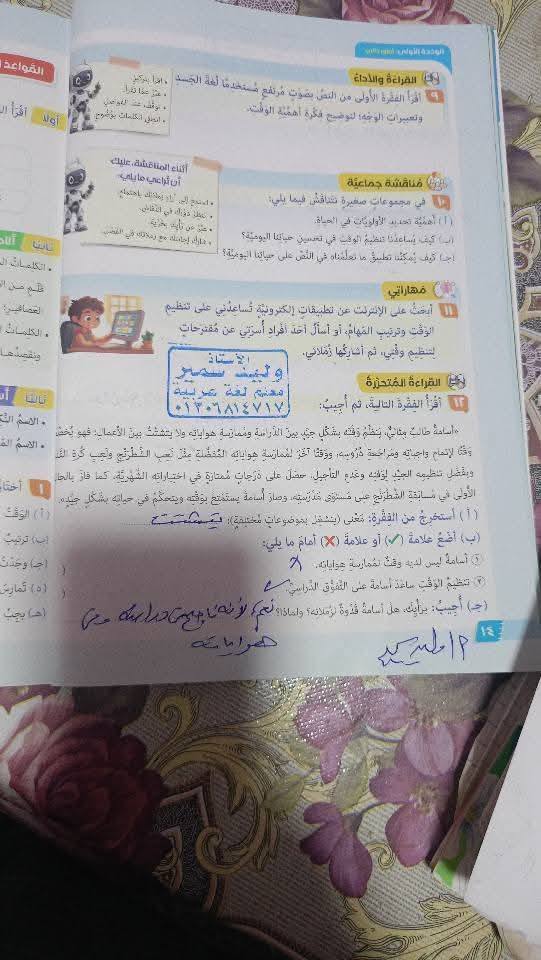 الوحدة الأولى:
القراءة والأداء
٩ أقرأ الفقرة الأولى من النص بصوت مرتفع مستخدمًا لغة الجسد
وتعبيرات الوجه؛ لتوضيح فكرة أهمية الوقت.
• اقرأ بتركيز
• عبر عما تقرأ
• توقف عند الفواصل
• انطق الكلمات بوضوح
مناقشة جماعية
١٠ في مجموعات صغيرة نتناقش فيما يلي:
(أ) أهمية تحديد الأولويات في الحياة.
(ب) كيف يساعدنا تنظيم الوقت في تحسين حياتنا اليومية؟
(جـ) كيف يمكننا تطبيق ما تعلمناه في النص على حياتنا اليومية؟
أثناء المناقشة، عليك
أن تراعي ما يلي:
• استمع إلى آراء زملائك باهتمام.
• انتظر دورك في النقاش.
• عبر عن رأيك بحرية.
• شارك إجابتك مع زملائك في الفصل.
مهاراتي
١١ أبحث على الإنترنت عن تطبيقات إلكترونية تساعدني على تنظيم
الوقت وترتيب المهام، أو أسأل أحد أفراد أسرتي عن مقترحات
لتنظيم وقتي، ثم أشاركها زملائي.
الأستاذ
وليد سمير
معلم لغة عربية
٠١٢٠٦٨١٤٧١٧
القراءة المتحررة
١٢ أقرأ الفقرة التالية، ثم أجيب:
«أسامة طالب مثالي، ينظم وقته بشكل جيد بين الدراسة وممارسة هواياته ولا يتشتت بين الأعمال؛ فهو
وقتًا لإتمام واجباته ومراجعة دروسه، ووقتًا آخر لممارسة هواياته المفضلة مثل لعب الشطرنج ولعب كرة
وبفضل تنظيمه الجيد لوقته وعدم التأجيل، حصل على درجات ممتازة في اختباراته الشهرية، كما فاز
الأولى في مسابقة الشطرنج على مستوى مدرسته، وصار أسامة يستمتع بوقته ويتحكم في حياته بشكل جيد».
(أ) أستخرج من الفقرة: معنى (ينشغل بموضوعات مختلفة): يتشتت
(ب) أضع علامة (✓) أو علامة (✗) أمام ما يلي:
١ أسامة ليس لديه وقت لممارسة هواياته. ✗
٢ تنظيم الوقت ساعد أسامة على التفوق الدراسي. ✓
(جـ) أجيب: برأيك، هل أسامة قدوة لزملائه؟ ولماذا؟ نعم، لأنه ناجح في دراسته وفي
هواياته
١٤
القواعد
أولا
أقرأ
ثانيا
• الكلمات
• الكلمات
ثالثا
• الاسم
• الاسم
١ أختار
(أ) الوقت
(ب) ترتيب
(جـ) وجدت
(هـ) يجب